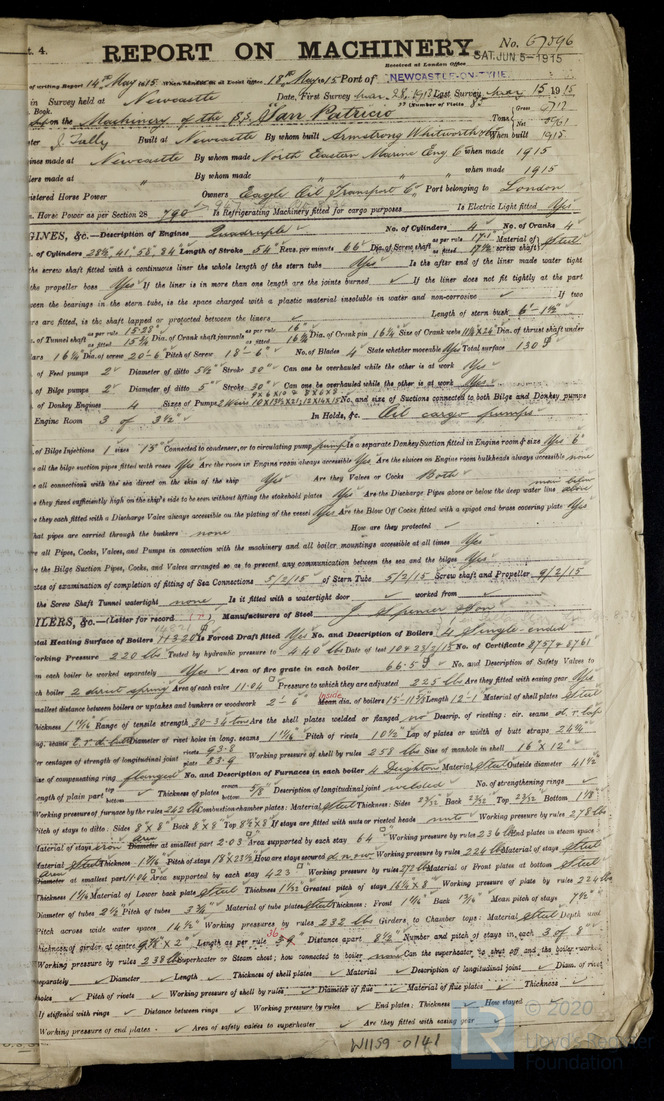 t. 4.
REPORT ON MACHINERY.
No. 67596
Received at London Office
SAT. JUN 5 - 1915
of writing Report 14th May 1915 When handed in at Local Office 18th May 1915 Port of NEWCASTLE-ON-TYNE.
in Survey held at Newcastle Date, First Survey Last Survey 1915
Book. (Number of Visits
on the Machinery of the S.S. "San Patricio" Tons Gross 9712 Net
Built at Newcastle By whom built Armstrong Whitworth & Co When built 1915
ines made at Newcastle By whom made North Eastern Marine Eng Co when made 1915
lers made at " By whom made " when made 1915
istered Horse Power Owners Eagle Oil Transport Co Port belonging to London
Horse Power as per Section 28 790 Is Refrigerating Machinery fitted for cargo purposes Is Electric Light fitted Yes
GINES, &c.—Description of Engines Quadruple No. of Cylinders 4 No. of Cranks 4
of Cylinders 28½" 41" 58" 84" Length of Stroke 54" Revs. per minute 66 Dia. of Screw shaft as per rule 17.1" as fitted Material of screw shaft Steel
the screw shaft fitted with a continuous liner the whole length of the stern tube Yes Is the after end of the liner made water tight
the propeller boss Yes If the liner is in more than one length are the joints burned If the liner does not fit tightly at the part
ween the bearings in the stern tube, is the space charged with a plastic material insoluble in water and non-corrosive If two
ers are fitted, is the shaft lapped or protected between the liners Length of stern bush 6'-1½"
of Tunnel shaft as per rule 15.28" as fitted 15¾" Dia. of Crank shaft journals as per rule 16" as fitted 16¼" Dia. of Crank pin 16¼" Size of Crank webs Dia. of thrust shaft under
lars 16¼" Dia. of screw 20'-6" Pitch of Screw 18'-6" No. of Blades 4 State whether moveable Yes Total surface 130
of Feed pumps 2 Diameter of ditto 5½" Stroke 30" Can one be overhauled while the other is at work Yes
of Bilge pumps 2 Diameter of ditto 5" Stroke 30" Can one be overhauled while the other is at work Yes
of Donkey Engines 4 Sizes of Pumps No. and size of Suctions connected to both Bilge and Donkey pumps
Engine Room 3 of 3½" In Holds, &c. Oil cargo pumps
of Bilge Injections 1 sizes 13" Connected to condenser, or to circulating pump pump Is a separate Donkey Suction fitted in Engine room & size Yes 6"
e all the bilge suction pipes fitted with roses Yes Are the roses in Engine room always accessible Yes Are the sluices on Engine room bulkheads always accessible none
e all connections with the sea direct on the skin of the ship Yes Are they Valves or Cocks Both
e they fixed sufficiently high on the ship's side to be seen without lifting the stokehold plates Yes Are the Discharge Pipes above or below the deep water line main below above
re they each fitted with a Discharge Valve always accessible on the plating of the vessel Yes Are the Blow Off Cocks fitted with a spigot and brass covering plate Yes
hat pipes are carried through the bunkers none How are they protected
re all Pipes, Cocks, Valves, and Pumps in connection with the machinery and all boiler mountings accessible at all times Yes
re the Bilge Suction Pipes, Cocks, and Valves arranged so as to prevent any communication between the sea and the bilges Yes
ates of examination of completion of fitting of Sea Connections 5/2/15 of Stern Tube 5/2/15 Screw shaft and Propeller 9/2/15
the Screw Shaft Tunnel watertight none Is it fitted with a watertight door worked from
ILERS, &c.—(Letter for record (r)) Manufacturers of Steel J Spencer & Son
otal Heating Surface of Boilers 11320 Is Forced Draft fitted Yes No. and Description of Boilers 4 Single-ended
orking Pressure 220 lbs Tested by hydraulic pressure to 440 lbs Date of test 10 & 23/2/15 No. of Certificate 8757 & 8761
n each boiler be worked separately Yes Area of fire grate in each boiler 66.5 No. and Description of Safety Valves to
ch boiler 2 direct spring Area of each valve 11.04 Pressure to which they are adjusted 225 lbs Are they fitted with easing gear Yes
mallest distance between boilers or uptakes and bunkers or woodwork 2'-6" Inside dia. of boilers Length 12'-1" Material of shell plates Steel
hickness 1 11/16" Range of tensile strength 30-34 tons Are the shell plates welded or flanged no Descrip. of riveting: cir. seams d.r. lap
ng. seams Diameter of rivet holes in long. seams 1 11/16" Pitch of rivets 10½" Lap of plates or width of butt straps 24¾"
er centages of strength of longitudinal joint rivets 93.8 plate 83.9 Working pressure of shell by rules 258 lbs Size of manhole in shell 16" x 12"
ize of compensating ring flanged No. and Description of Furnaces in each boiler 4 Deighton Material Steel Outside diameter 41½"
ength of plain part top bottom Thickness of plates crown bottom 5/8" Description of longitudinal joint welded No. of strengthening rings
Working pressure of furnace by the rules 242 lbs Combustion chamber plates: Material Steel Thickness: Sides 23/32" Back 23/32" Top 23/32" Bottom 1 1/8"
Pitch of stays to ditto: Sides 8" x 8" Back 8" x 8" Top 8½" x 8" If stays are fitted with nuts or riveted heads nuts Working pressure by rules 278 lbs
Material of stays iron Area at smallest part 2.03 Area supported by each stay 64 Working pressure by rules 236 lbs End plates in steam space:
Material Steel Thickness 1 9/16" Pitch of stays How are stays secured d. nuts Working pressure by rules 224 lbs Material of stays Steel
Area at smallest part 11.06 Area supported by each stay 423 Working pressure by rules 272 lbs Material of Front plates at bottom Steel
Thickness 1 1/16" Material of Lower back plate Steel Thickness 1 1/32" Greatest pitch of stays Working pressure of plate by rules 224 lbs
Diameter of tubes 2½" Pitch of tubes 3¾" Material of tube plates Steel Thickness: Front 1 1/16" Back Mean pitch of stays 7½"
Pitch across wide water spaces 14½" Working pressures by rules 232 lbs Girders to Chamber tops: Material Steel Depth and
thickness of girder at centre 9¼" x 2" Length as per rule 36 Distance apart 8½" Number and pitch of stays in each 3 of 8"
Working pressure by rules 238 lbs Superheater or Steam chest; how connected to boiler none Can the superheater be shut off and the boiler worked
separately Diameter Length Thickness of shell plates Material Description of longitudinal joint Diam. of rivet
holes Pitch of rivets Working pressure of shell by rules Diameter of flue Material of flue plates Thickness
If stiffened with rings Distance between rings Working pressure by rules End plates: Thickness How stayed
Working pressure of end plates Area of safety valves to superheater Are they fitted with easing gear
W1159-0141
© 2020
Lloyd's Register
Foundation
LR